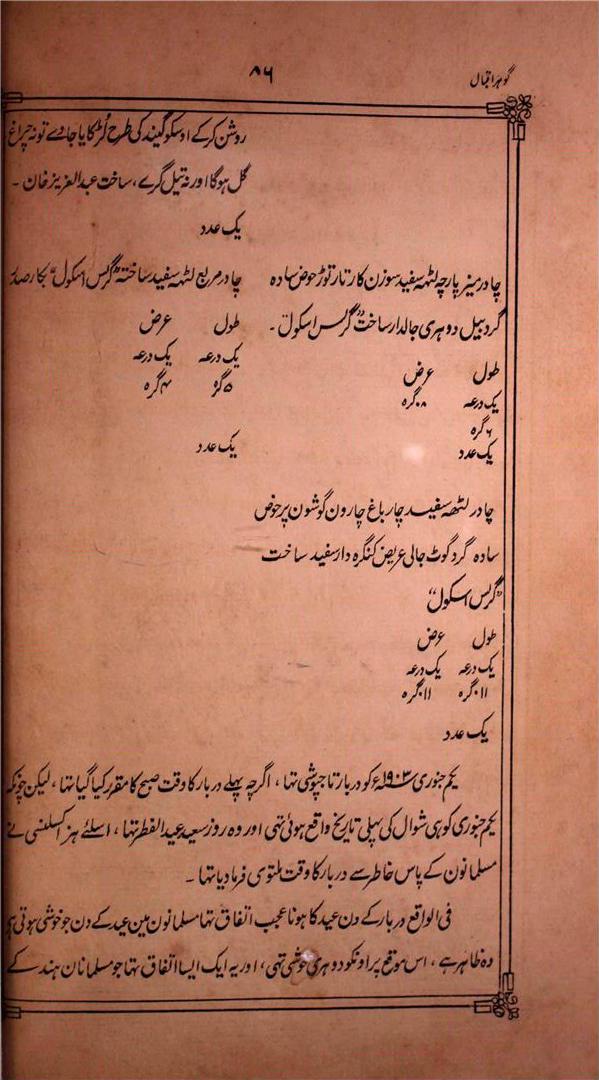 گوہر اقبال
۸۶
روشن کرکے اوسکو گیند کی طرح لُڑکایا جاوے تو نہ چراغ
گل ہوگا اور نہ تیل گرے، ساخت عبدالعزیز خان -
یک عدد
چادر میز پارچہ لٹھہ سفید سوزن کار تار توڑ حوض سادہ
گرد بیل دوہری جالدار ساخت "گرلس اسکول" -
طول عرض
یک درعہ ۸ گرہ
۶ گرہ
یک عدد
چادر مربع لٹھہ سفید ساختہ "گرلس اسکول" بکار صدر
طول عرض
یک درعہ یک درعہ
۵ گز ۴ گرہ
یک عدد
چادر لٹھہ سفید چار باغ چارون گوشون پر حوض
سادہ گرد گوٹ جالی عریض کنگرہ دار سفید ساخت
"گرلس اسکول"
طول عرض
یک درعہ یک درعہ
۱۱ گرہ ۱۱ گرہ
یک عدد
یکم جنوری ۱۹۰۳ء کو دربار تاجپوشی تہا، اگرچہ پہلے دربار کا وقت صبح کا مقرر کیا گیا تہا، لیکن چونکہ
یکم جنوری کو ہی شوال کی پہلی تاریخ واقع ہوئی تہی اور وہ روز سعید عید الفطر تہا، اسلئے ہز اکسلنسی نے
مسلمانون کے پاس خاطر سے دربار کا وقت ملتوی فرمادیا تہا -
فی الواقع دربار کے دن عید کا ہونا عجب اتفاق تہا مسلمانون مین عید کے دن جو خوشی ہوتی ہی
وہ ظاہر ہے، اس موقع پر اونکو دوہری خوشی تہی، اور یہ ایک ایسا اتفاق تہا جو مسلمانان ہند کے